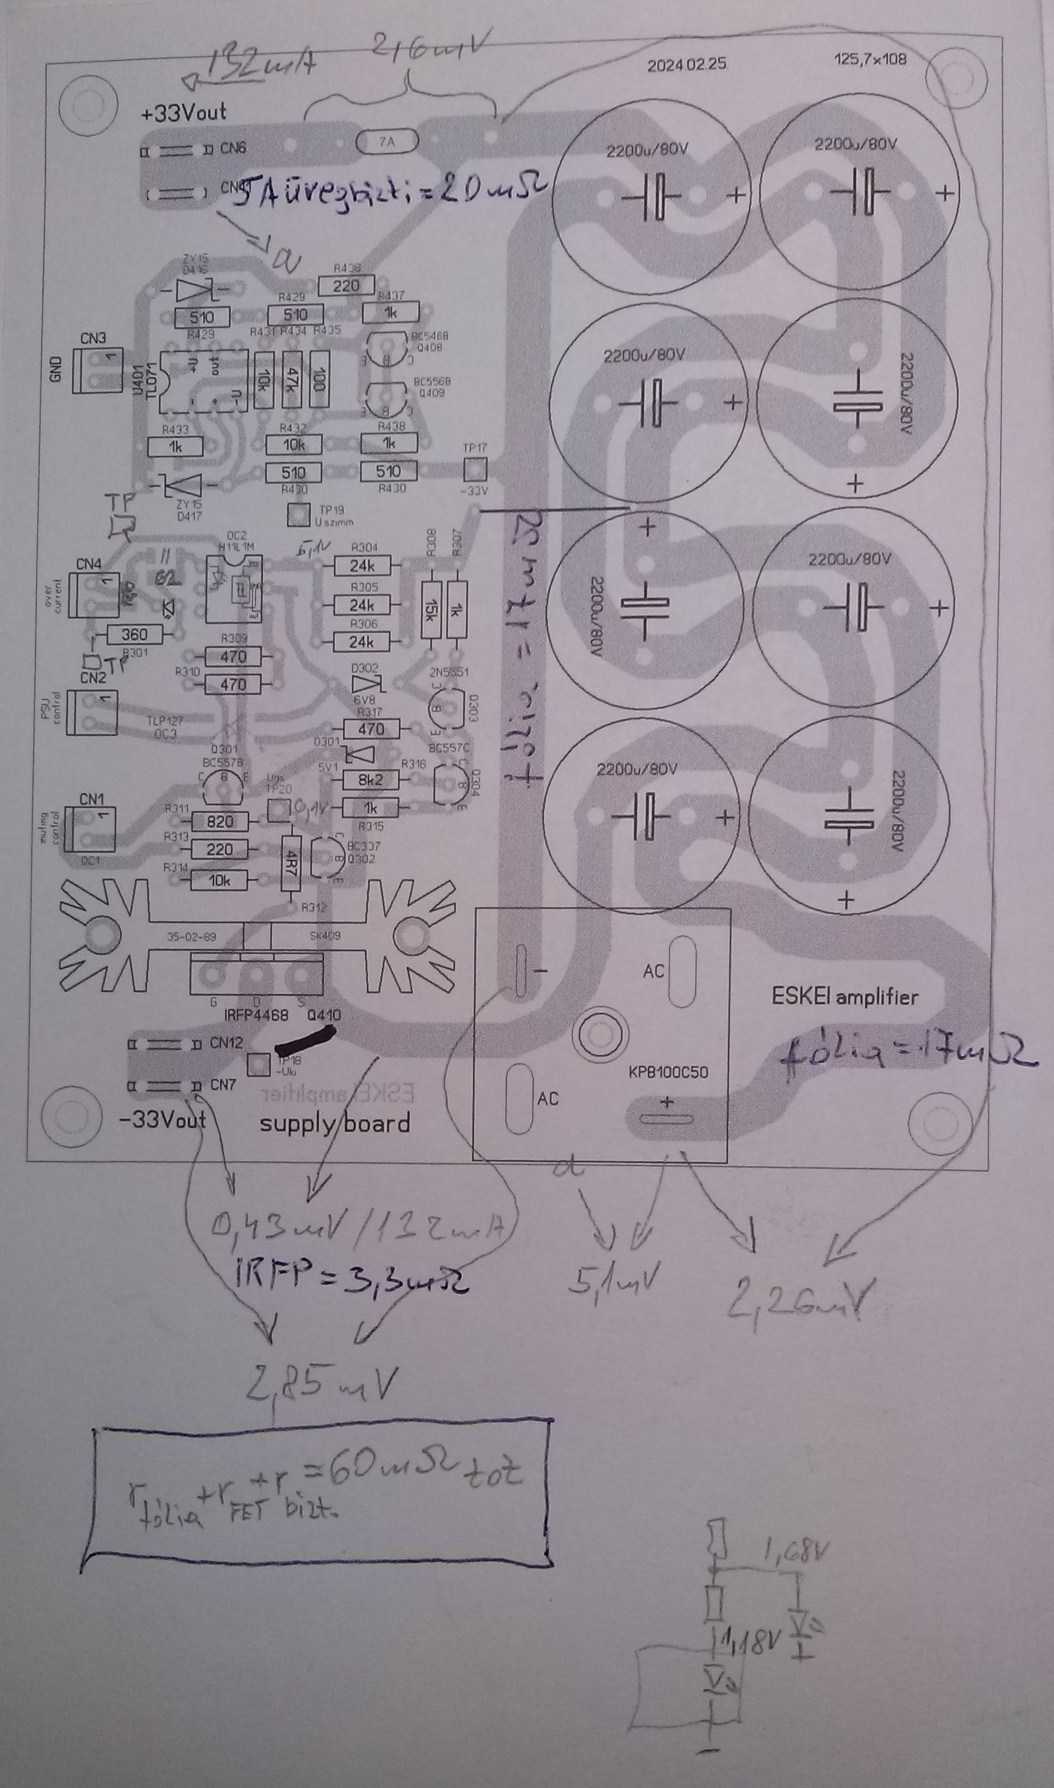 132mA
2,6mV
2024.02.25.
125,7x108
+33Vout
CN6
7A
2200u/80V
+
2200u/80V
+
5A üvegbizti = 20mΩ
a
ZY15
D416
R436
220
510
R429
510
R437
1k
R429
R431
R434
R435
BC546B
Q408
CN3
1
GND
U401
TL071
+U
out
-
+
-U
10k
47k
100
BC556B
Q409
2200u/80V
+
2200u/80V
+
R433
1k
R432
10k
R438
1k
510
R430
510
R430
TP17
-33V
ZY15
D417
TP
TP19
Uszimm
OC2
H11L1M
5,1V
R304
24k
R308
R307
CN4
1
over
current
R305
24k
15k
1k
360
R301
R306
24k
TP
R309
470
R310
470
CN2
1
PSU
control
D302
6V8
2N5551
Q303
TLP127
OC3
R317
470
Q301
BC557B
D301
5V1
8k2
R316
BC557C
Q304
CN1
1
muting
control
OC1
Ugs
TP20
0,1V
1k
R315
R311
820
R313
220
R314
10k
4R7
BC337
Q302
R312
fólia = 17mΩ
2200u/80V
+
2200u/80V
+
2200u/80V
+
2200u/80V
+
35-02-89
SK409
G
D
S
IRFP4468
Q410
-
AC
ESKEI amplifier
CN12
TP18
-Uki
CN7
KPB100C50
fólia = 17mΩ
AC
+
ESKEI amplifier
-33Vout
supply board
a
0,43mV/132mA
IRFP = 3,3mΩ
5,1mV
2,26mV
2,85mV
r fólia + r FET + r bizt. = 60mΩ tot
1,68V
1,18V